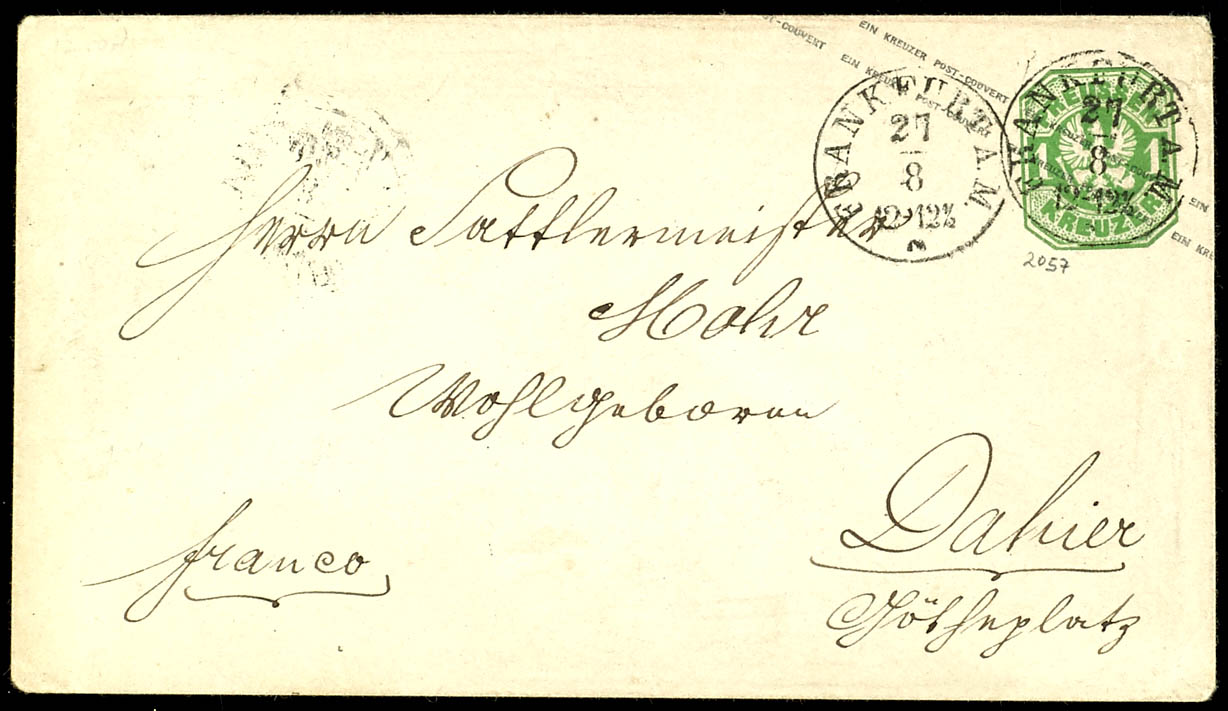 EIN KREUZER POST-COUVERT
POST-COUVERT
EIN KREUZER POST-COUVERT
FRANKFURT A.M.
27
8
12-12½
FRANKFURT A.M.
27
8
12-12½
PREUSSEN
1 1
KREUZER
EIN
EIN KREU
2057
Herrn Sattlermeister
Mohr
Wohlgeboren
Dahier
franco
Götheplatz